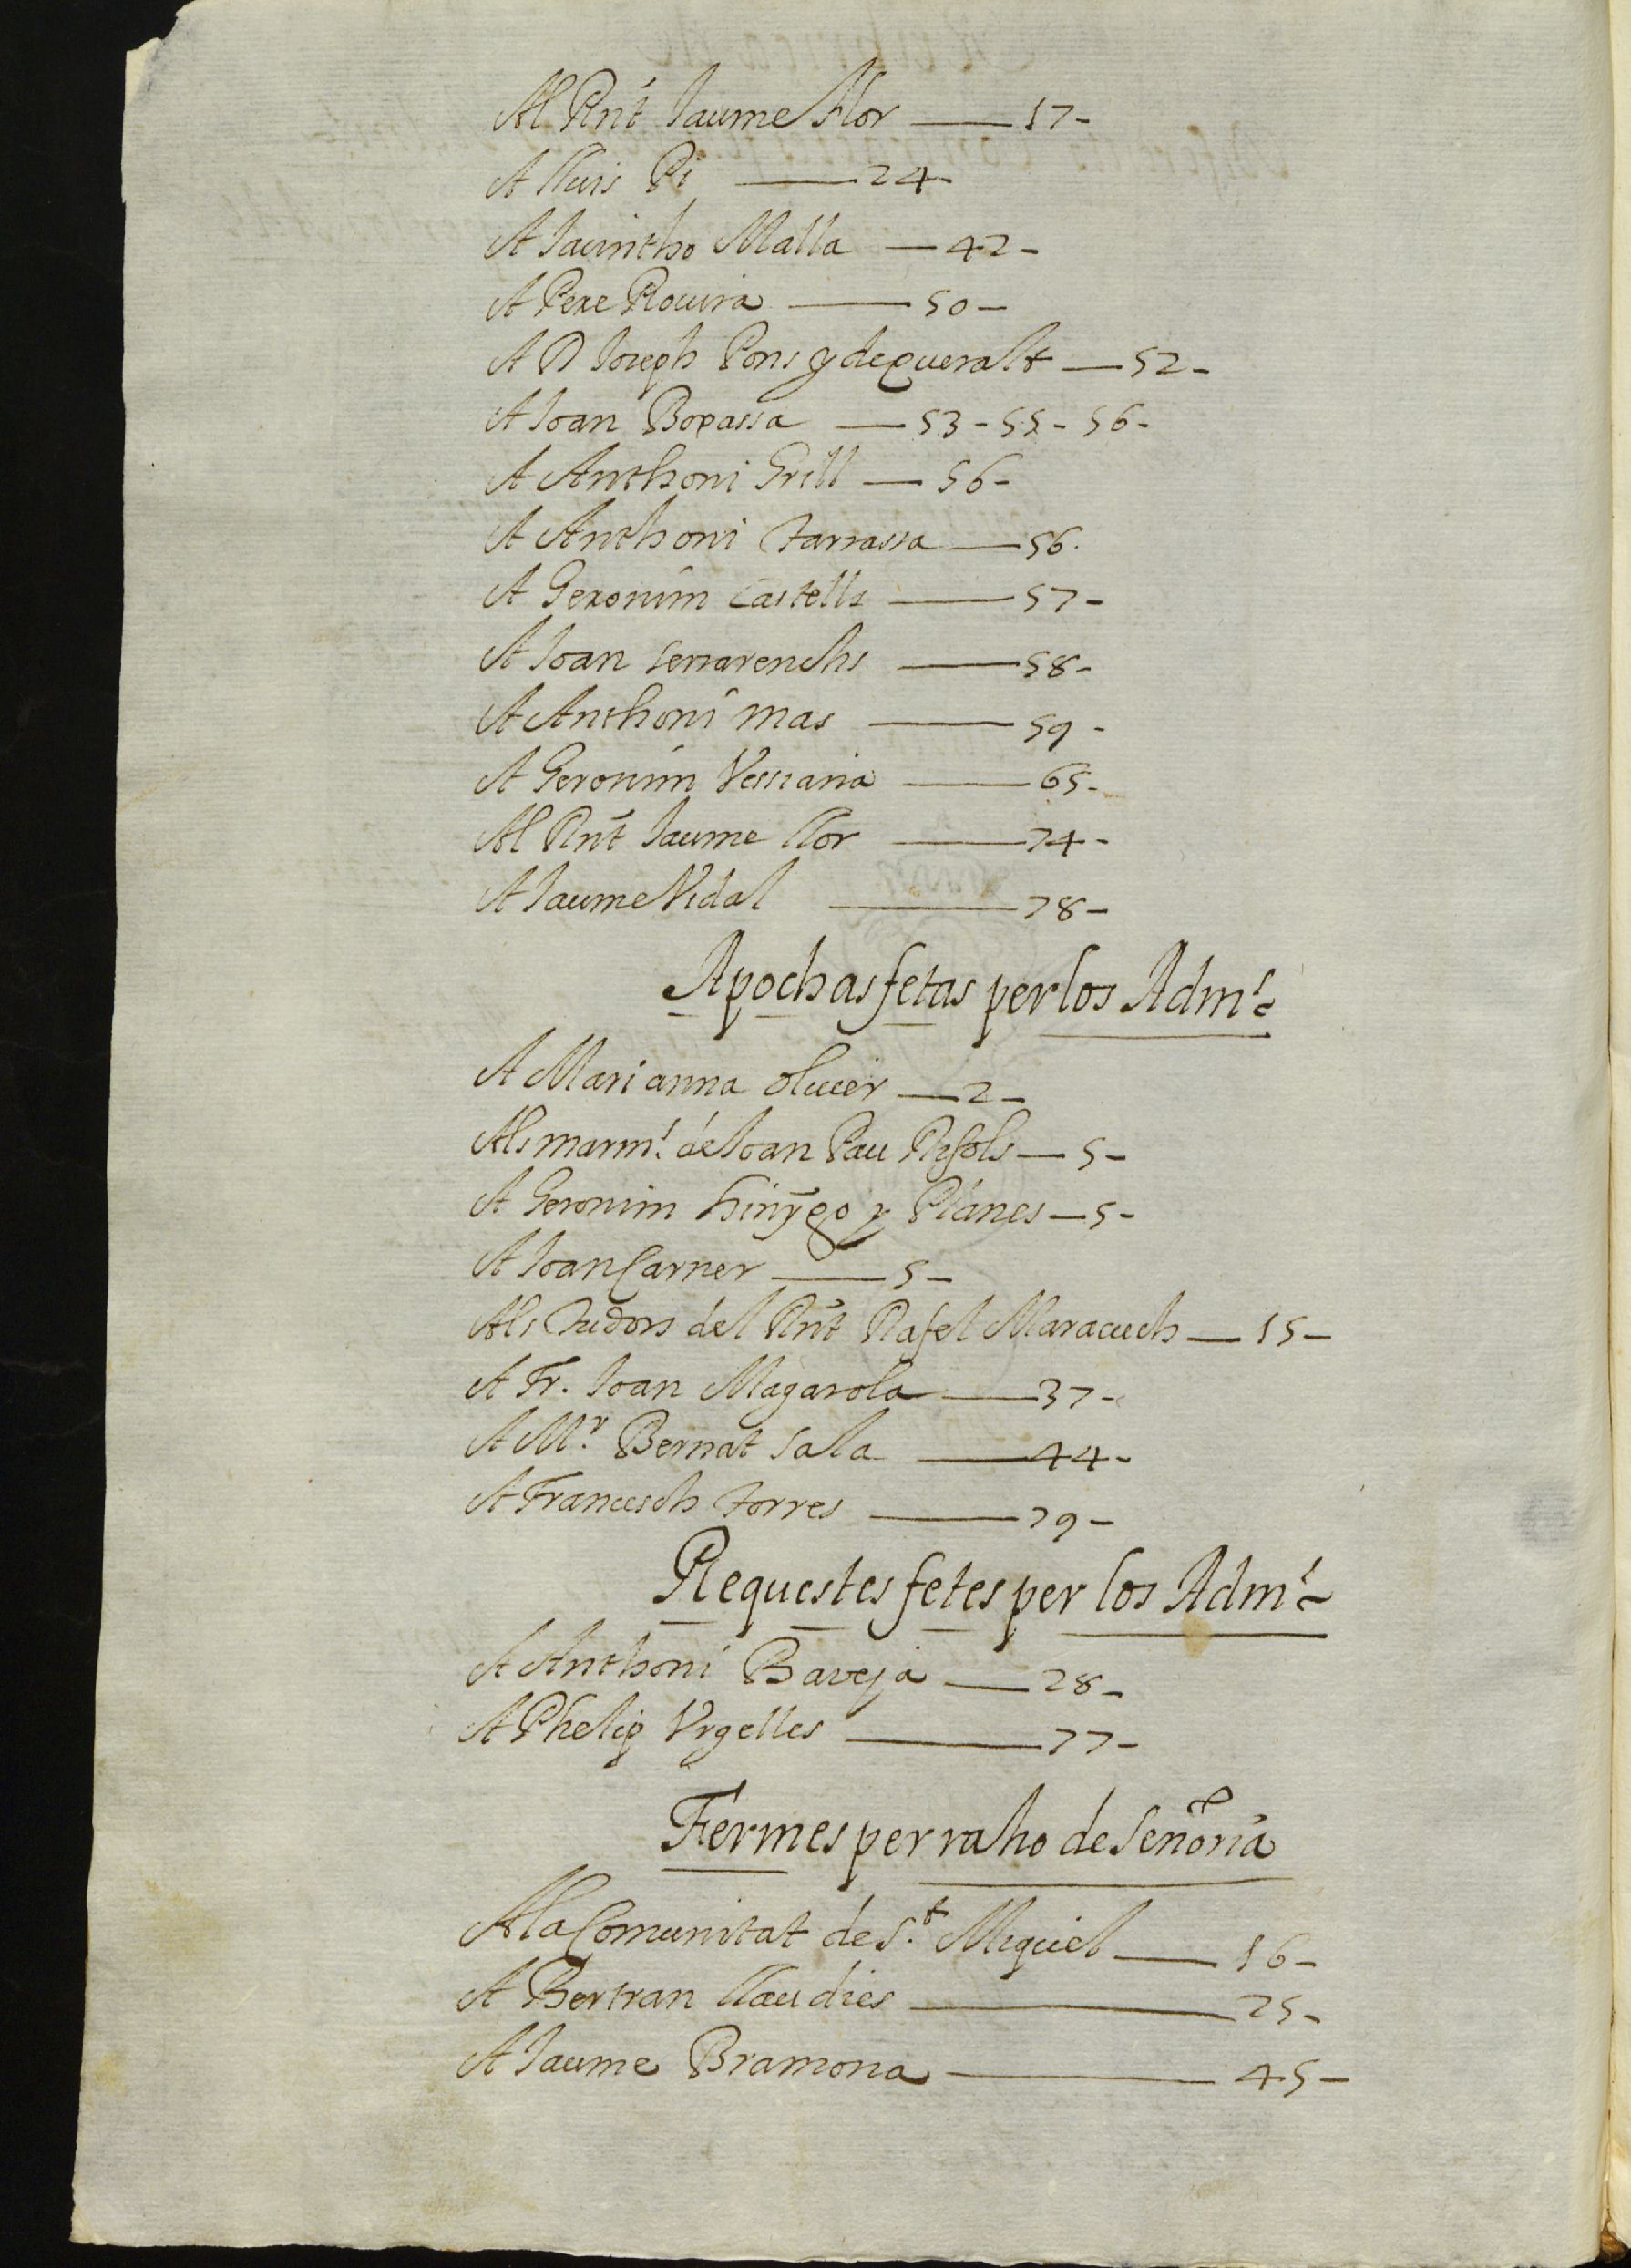 Al Rnt Jaume Llor — 17-
A Lluis Pi — 24-
A Jacintho Malla — 42-
A Pere Rovira — 50-
A D Joseph Pons y de queralt — 52-
A Joan Bopassa — 53 - 55 - 56-
A Anthoni Grill — 56-
A Anthoni Tarrassa — 56.
A Geronim Castells — 57-
A Joan serrarenchs — 58-
A Anthoni mas — 59-
A Geronim Vessiana — 65-
Al Rnt Jaume llor — 74-
A Jaume Vidal — 78-
Apochas fetas per los Adms
A Marianna oliver — 2-
Als marm.s de Joan Pau — 5-
A Geronim hinyego y Planes — 5-
A Joan Carner — 5-
Als Tudors del Rnt Rafel — 15-
A Fr. Joan Magarola — 37-
A Mr. Bernat sala — 44-
A Francesch torres — 79-
Requestes fetes per los Adms
A Anthoni Bareja — 28-
A Phelip Vrgelles — 77-
Fermes per raho de señoria
A la Comunitat de St. Miquel — 16-
A Bertran llaudies — 25-
A Jaume Bramona — 45-